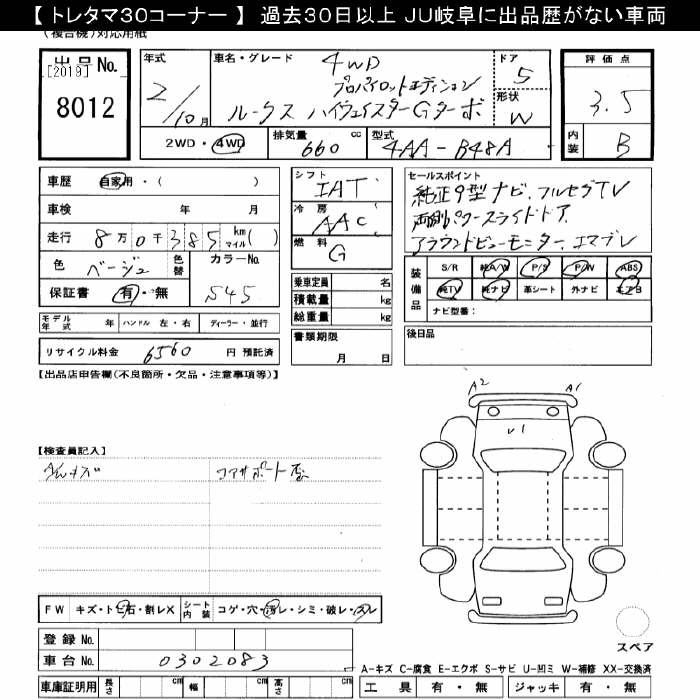 【 トレタマ30コーナー 】 過去30日以上 JU岐阜に出品歴がない車両
(複合機)対応用紙
出品No.
[2019]
8012
年式
2/10月
車名・グレード
4WD
プロパイロットエディション
ルークス ハイウェイスターGターボ
ドア
5
形状
W
評価点
3.5
内装
B
2WD・4WD
排気量
660 cc
型式
4AA-B48A
車歴 自家用・( )
車検 年 月
走行 8万0千385 km マイル( )
色 ベージュ 色替 カラーNo.
S45
保証書 有・無
シフト
IAT
冷房
AAC
燃料
G
乗車定員 名
積載量 kg
総重量 kg
セールスポイント
純正9型ナビ、フルセグTV
両側パワースライドドア
アラウンドビューモニター、エマブレ
装備品
S/R 純A/W P/S P/W ABS
純TV 純ナビ 革シート 外ナビ エアB
ナビ型番:
モデル年式 年 ハンドル 左・右 ディーラー・並行
書類期限
月 日
後日品
リサイクル料金 6560 円 預託済
【出品店申告欄(不良箇所・欠品・注意事項等)】
A2 A1
U1
【検査員記入】
コアサポート
FW キズ・トビ石・割レX シート内装 コゲ・穴・汚レ・シミ・破レ・スレ
登録 No.
車台 No. 0302083
スペア
A-キズ C-腐食 E-エクボ S-サビ U-凹ミ W-補修 XX-交換済
車庫証明用 長さ cm 幅 cm 高さ cm
工具 有・無 ジャッキ 有・無